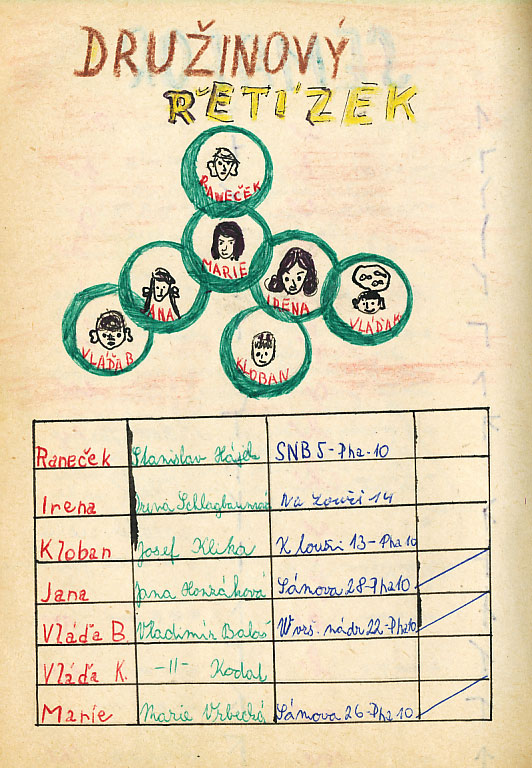 DRUŽINOVÝ
ŘETÍZEK
RANEČEK
MARIE
JANA
IRENA
VLÁĎA K
VLÁĎA B
KLOBAN
Raneček Stanislav Hájek SNB 5 - Pha - 10
Irena Irena Na Louži 14
Kloban Josef Klika K louži 13 - Pha 10
Jana Jana Honzáková Sámova 28 - Pha 10
Vláďa B. Vladimír Baloš W vrš. nádr 22 - Pha 10
Vláďa K. -11- Kodat
Marie Marie Vrbecká Sámova 26 - Pha 10